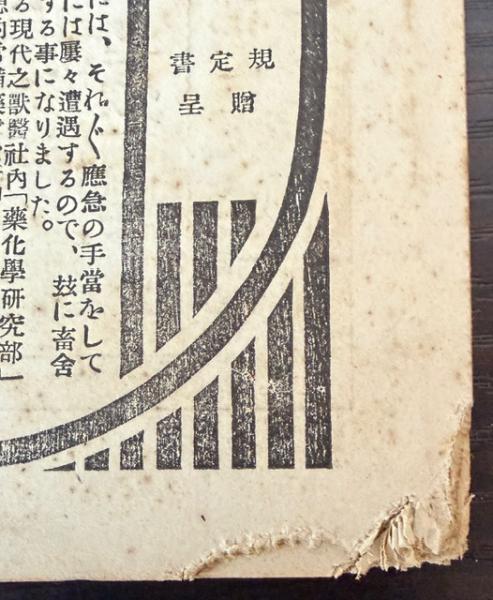 規定書
贈呈
には、それ／″＼應急の手當をして
には屢々遭遇するので、茲に畜舍
する事になりました。
る現代之獸醫社內「藥化學硏究部」